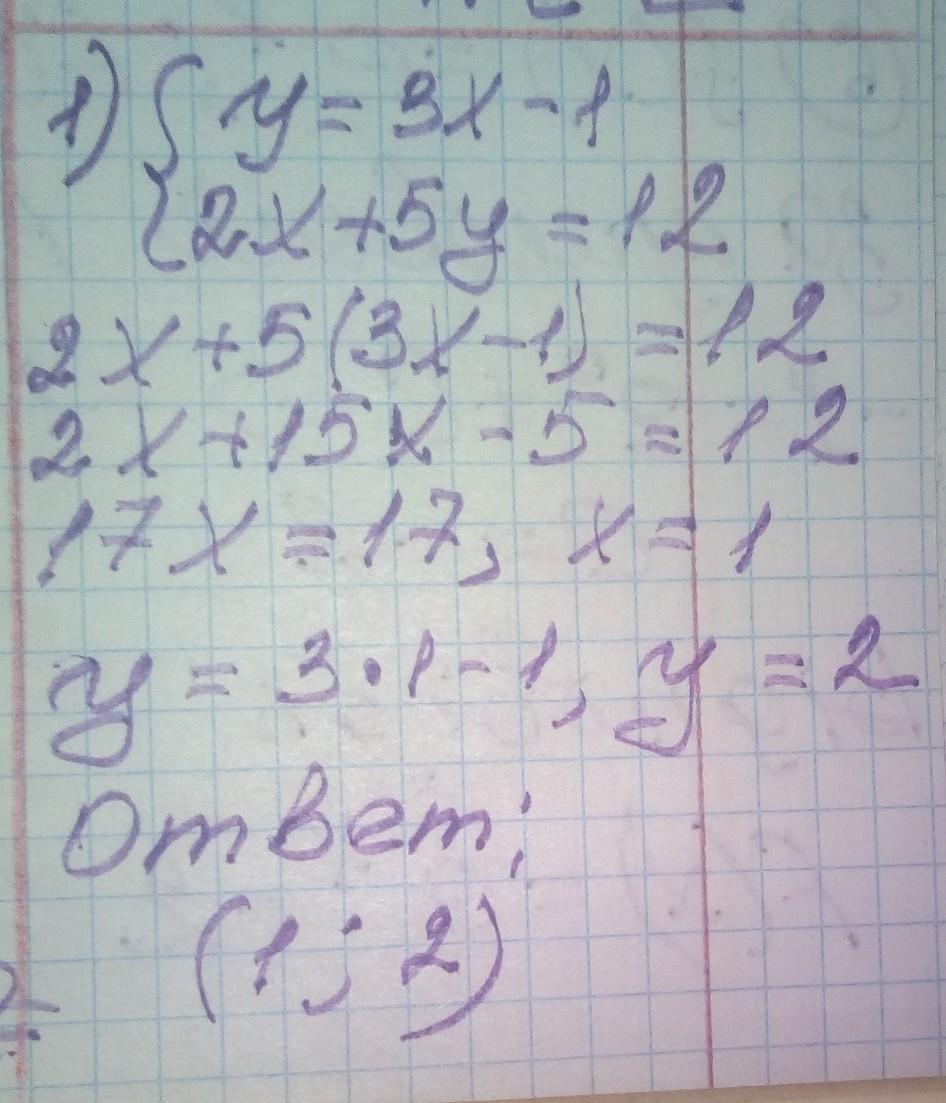 1) { y = 3x - 1
2x + 5y = 12
2x + 5(3x - 1) = 12
2x + 15x - 5 = 12
17x = 17, x = 1
y = 3 · 1 - 1, y = 2
Ответ:
(1; 2)